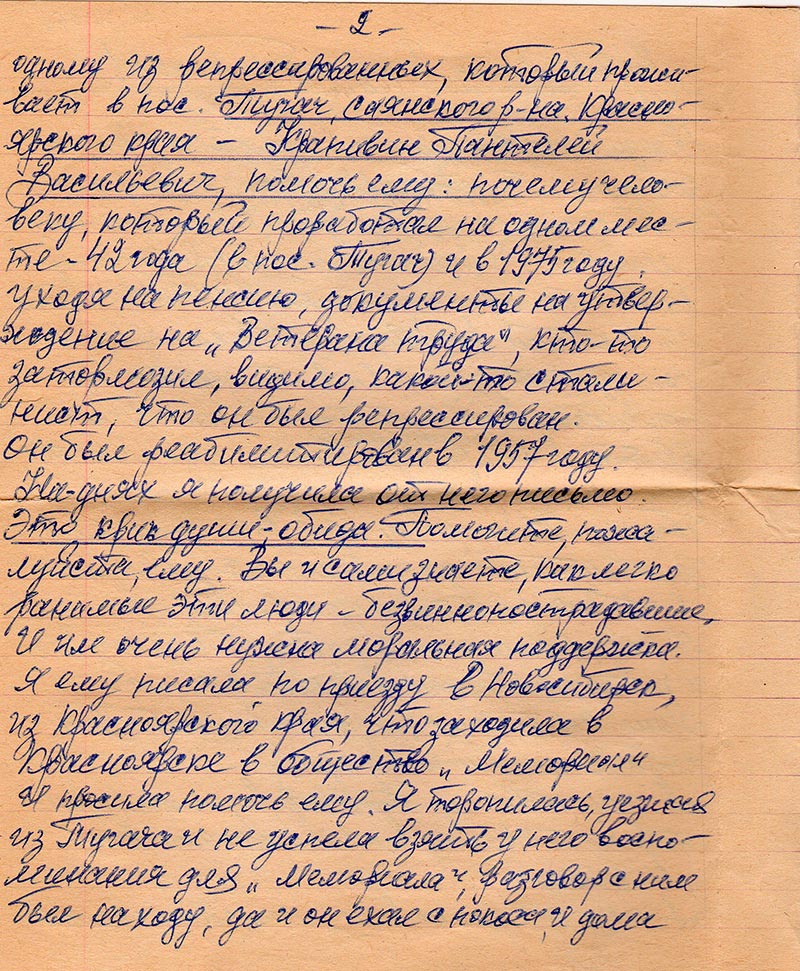 - 2 -
одному из репрессированных, который прожи-
вает в пос. Тугач, саянского р-на, Красно-
ярского края - Крапивин Пантелей
Васильевич, помочь ему: почему чело-
веку, который проработал на одном мес-
те - 42 года (в пос. Тугач) и в 1975 году,
уходя на пенсию, документы на утвер-
ждение на „Ветерана труда", кто-то
затормозил, видимо, какой-то стали-
нист, что он был репрессирован.
Он был реабилитирован в 1957 году.
На-днях я получила от него письмо.
Это крик души, обида. Помогите, пожа-
луйста, ему. Вы и сами знаете, как легко
ранимые эти люди - безвиннопострадавшие,
и им очень нужна моральная поддержка.
Я ему писала по приезду в Новосибирск,
из Красноярского края, что заходила в
Красноярске в общество „Мемориал"
и просила помочь ему. Я торопилась, уезжая
из Тугача и не успела взять у него воспо-
минания для „Мемориала", разговор с ним
был на ходу, да и он ехал с покоса, и дома